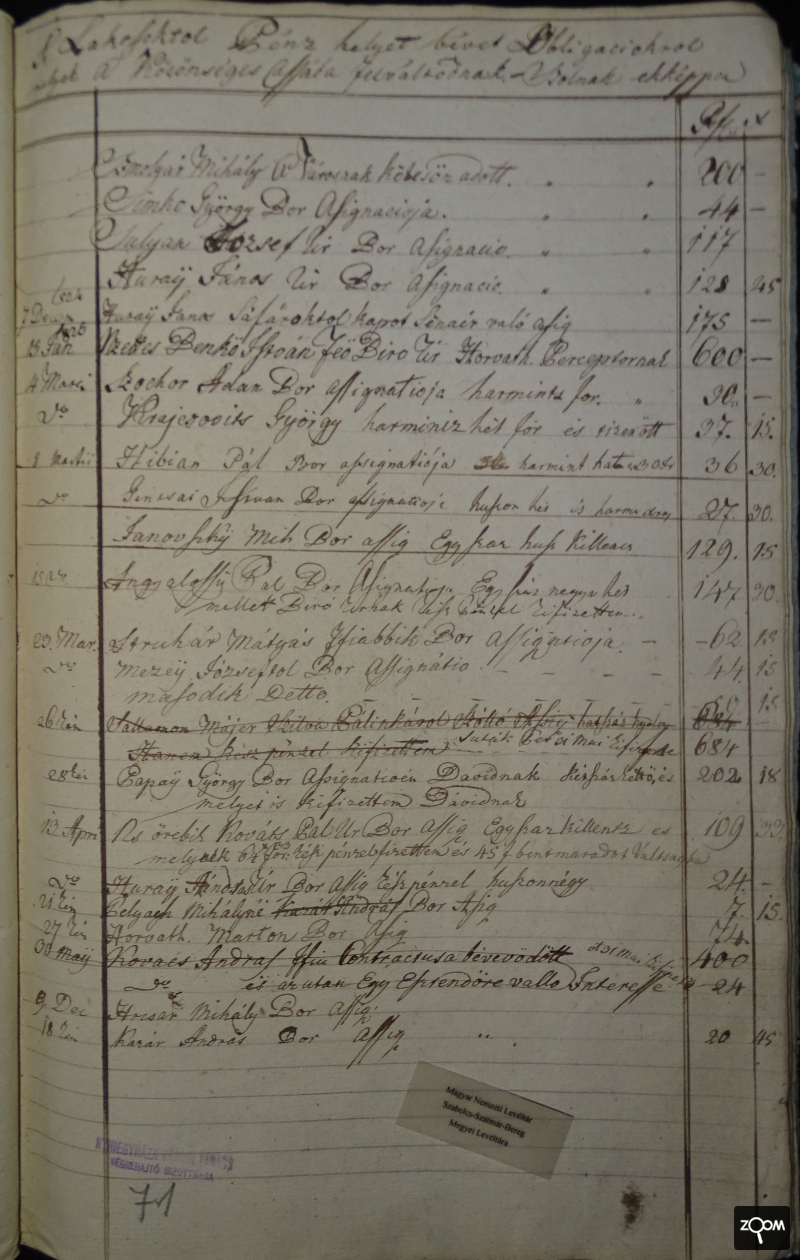 A Lakosoktol Pénz helyet bévet Obligaciokrol
melyek A Közönséges Cassába felváltodnak Volnak ekképpen
Rf. x
Smolyár Mihály A Városnak költsön adott. 200 —
Simko György Bor Asignacioja. 44 —
Sulyan Jozsef Ur Bor Asignacio. 117
Huraÿ János Ur Bor Asignacio. 128 45
7 Decem Huraÿ Janos Sáfároktol kapot Szénaér való asig 175 —
13 Jan Nzetes Benkö István Feö Biro Ur Horvath Perceptornak 600 —
4 Marci Szochor Adan Bor assignatioja harmintz for. 30 —
do Krajcsovits György harmintz hét for és tizenött 37. 15.
8 Martii Hibian Pál Bor assignatiója harmint hat 36 30.
do Bor assignatioje huszon hét is harmintz 27. 30.
Janovskÿ Mih Bor assig Egy száz husz Killencz 129. 15
Angyalossÿ Pal Bor Asignatioja Egy száz negyven hét 147 30.
mellet Biró Urnak kész pénzel kifizettem
29. Mar. Struhár Mátyás Ifiabbik Bor Assignatioja. — 62 15
do Mezeÿ Józseftol Bor Assignátio 44 15
masodik Detto. 15
26 Ein Sallamon Májer Zsitva Pálinkárol Költö hatszáz 684
Hanem kész pénzel kifizettem 684
28 Ein Papaÿ György Bor Assignatioin Davidnak kétszáz kettö, és 202. 18
melyet is kifizettem Dávidnak
13 Apri Ns örebik Kováts Pál Ur Bor Assig Egy száz Killentz es 109 33
melynek 64 for. kész pénzel fizettem és 45 f. bent maradot
do Huraÿ János Ur Bor Assig kész pénzel huszonnégy 24. —
21 Ein Belyach Mihályné Kazár András Bor Asig 7. 15.
27 Ein Horvath Marton Bor Asig 74.
30 Maÿ Kovacs Andras Ifiu Contractusa bévevödött 400
do és az utan Egy Esztendöre vallo Interesse 24
9 Dec Hrisár Mihálÿ Bor Assig.
18 Ein Kazár András Bor Assig „ 20 45
Magyar Nemzeti Levéltár
Szabolcs-Szatmár-Bereg
Megyei Levéltára
NYÍREGYHÁZA VÁROSI TANÁCS
VÉGREHAJTÓ BIZOTTSÁGA
71
ZOOM